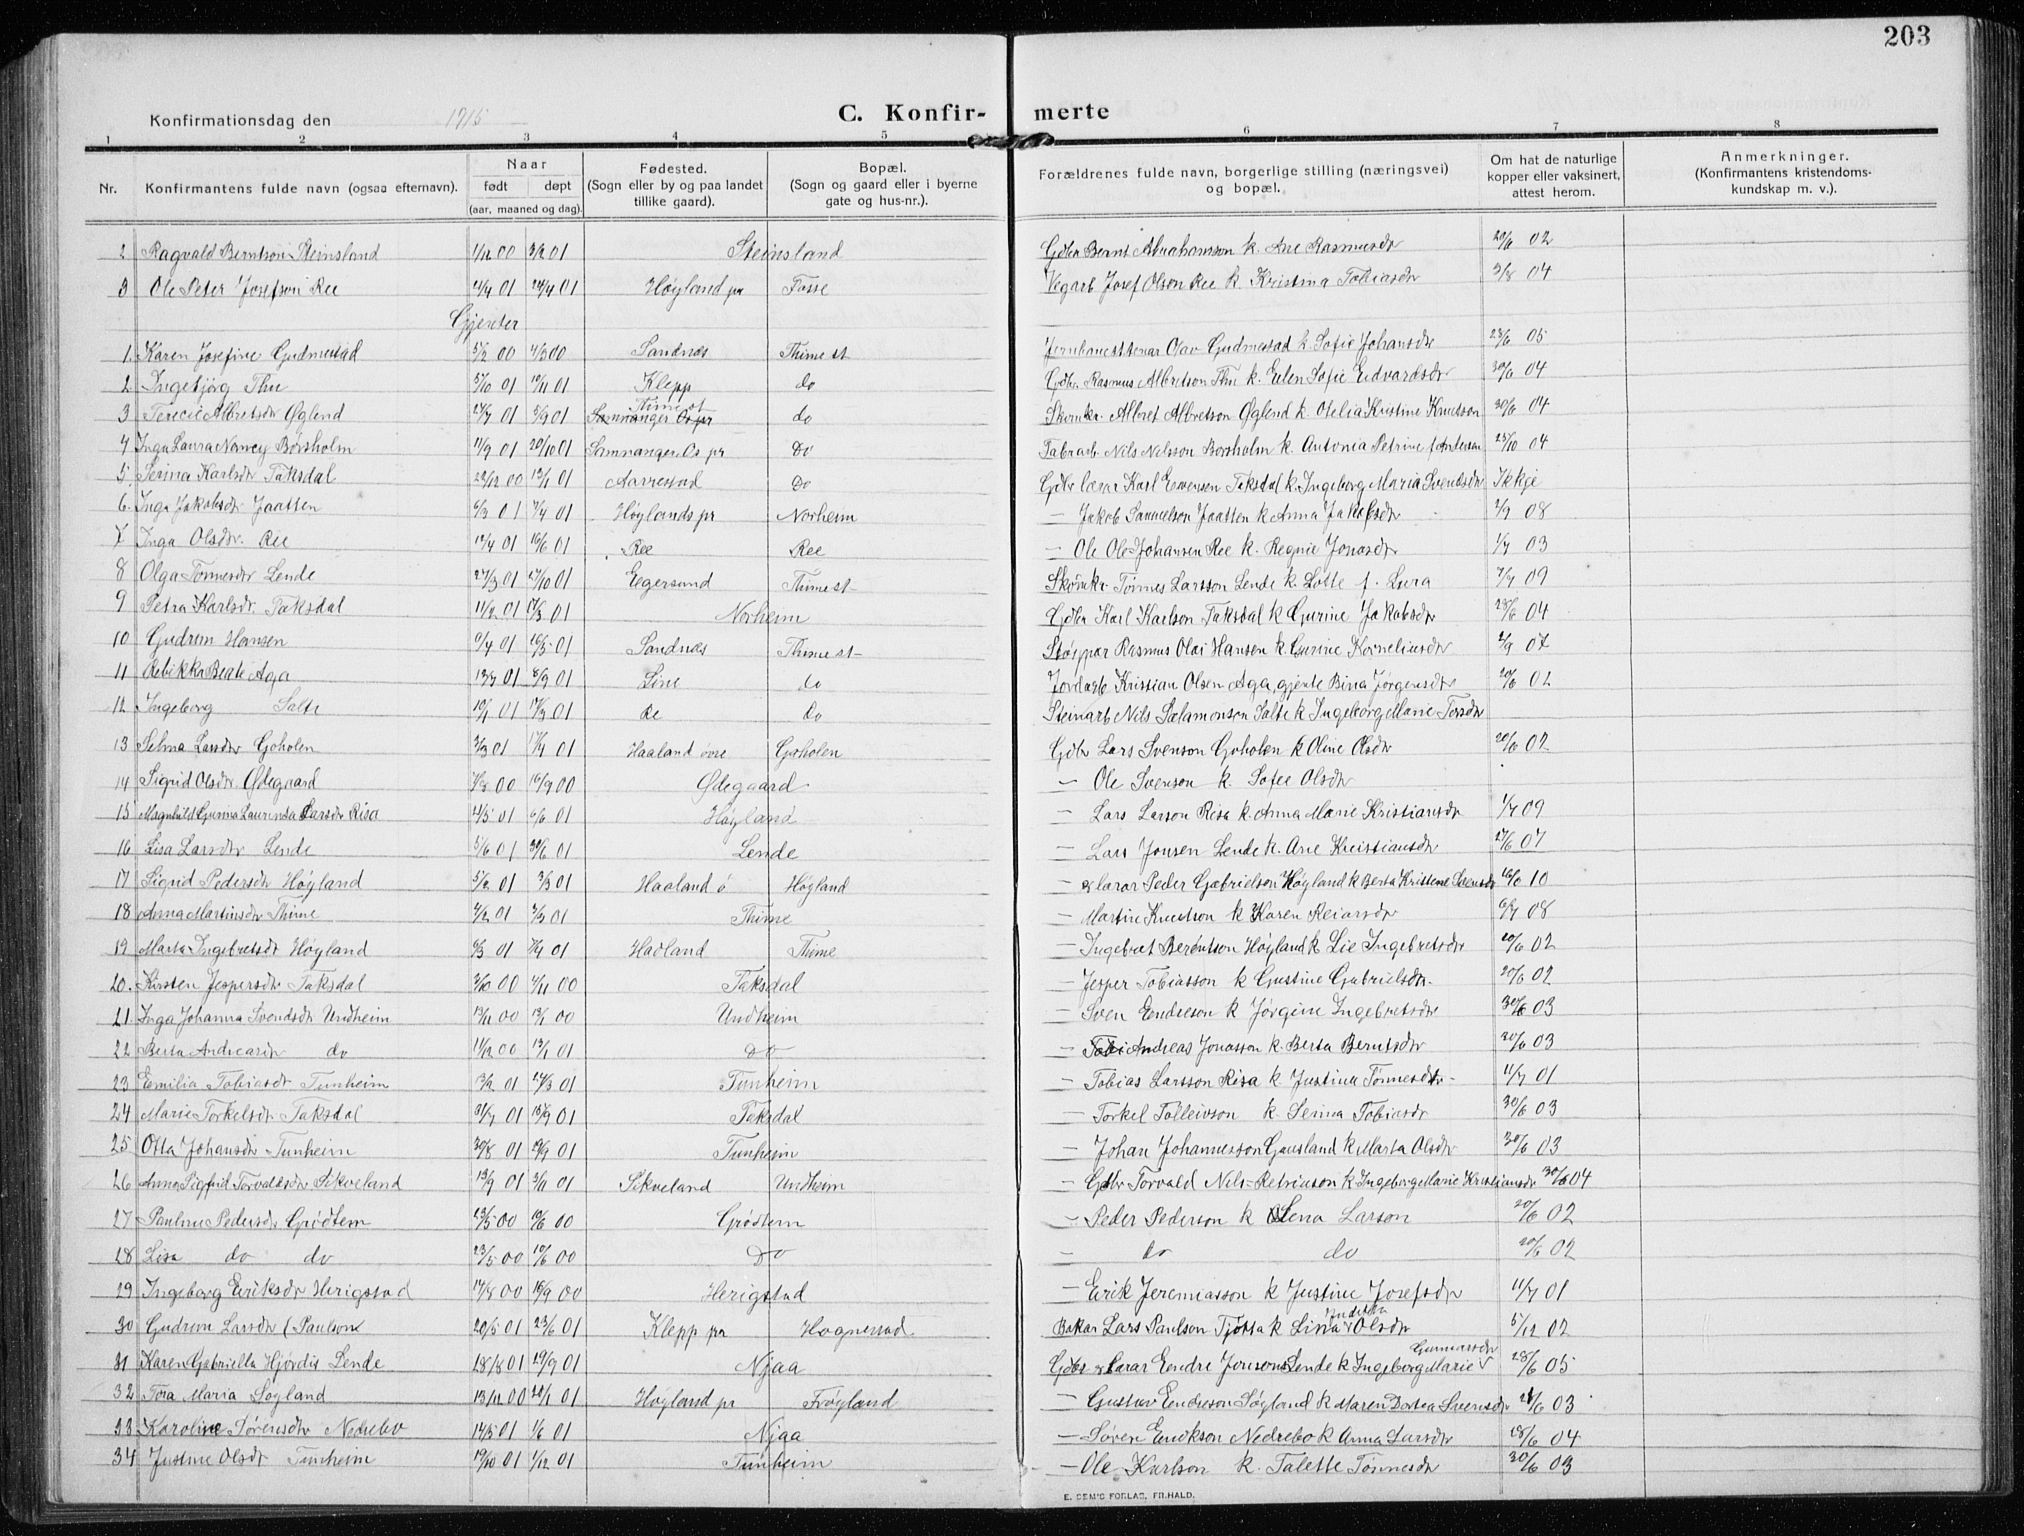 203
Konfirmationsdag den 1915
C. Konfir- merte
1 2 3 4 5 6 7 8
Nr. Konfirmantens fulde navn (ogsaa efternavn). Naar født døpt (aar, maaned og dag). Fødested. (Sogn eller by og paa landet tillike gaard). Bopæl. (Sogn og gaard eller i byerne gate og hus-nr.). Forældrenes fulde navn, borgerlige stilling (næringsvei) og bopæl. Om hat de naturlige kopper eller vaksinert, attest herom. Anmerkninger. (Konfirmantens kristendoms-kundskap m. v.).
2 Ragvald Berntson Steinsland 1/12 00 3/2 01 Steinsland Gdbr Bernt Abrahamson k. Ane Rasmusdr 20/6 02
3 Ole Peter Josefson Ree 4/4 01 28/4 01 Høyland pr Fosse Vegarb Josef Olson Ree k. Kristina Tobiasdr 3/8 04
Gjenter
1. Karen Josefine Gudmestad 5/2 00 4/3 00 Sandnæs Thime st Jernbanestenar Olav Gudmestad k Sofie Johansdr 28/6 05
2 Ingebjørg Thu 5/10 01 10/11 01 Klepp do Gdbr. Rasmus Albretson Thu k. Elen Sofie Edvardsdr 30/6 04
3 Terecie Albretsdr Øglend 27/7 01 3/9 01 Samnanger Os pr Thime st do Skomkr. Albret Albretson Øglend k. Otelia Kristine Knutson 30/6 04
4 Inga Laura Nancy Borsholm 11/9 01 20/10 01 Samnanger Os pr Do Fabrarb Nils Nilsson Borsholm k. Antonia Petrine f Andersen 23/10 04
5. Serina Karlsdr Taksdal 22/12 00 13/1 01 Aarrestad Do Gdbr lærar Karl Evensen Taksdal k. Ingeborg Maria Svendsdr Ikkje
6. Inga Jakobsdr Jaatten 6/3 01 7/4 01 Høylands pr Norheim — Jakob Samuelson Jaatten k Anna Jakobsdr 2/9 08
7 Inga Olsdr. Ree 19/4 01 16/6 01 Ree Ree — Ole Ole Johansen Ree k. Regnie Jonasdr 1/7 03
8 Olga Tønnesdr Lende 27/3 01 27/10 01 Egersund Thime st Skomkr Tønnes Larsson Lende k. Lotte f. Lura 7/7 09
9 Petra Karlsdr. Taksdal 11/2 01 17/3 01 Norheim Gdbr Karl Karlson Taksdal k Gurine Jakobsdr 28/6 04
10 Gudrun Hansen 9/4 01 16/5 01 Sandnæs Thime st Støypar Rasmus Olai Hansen k. Gurine Korneliusdr 2/9 07
11 Rebikka Beate Aga 13/7 01 8/9 01 Line do Jordarb Kristian Olsen Aga, gjente Bina Jørgensdr 20/6 02
12 Ingeborg Salte 10/1 01 17/3 01 Re do Steinarb Nils Salamonson Salte k Ingeborg Marie Torsdr
13 Selma Larsdr Goholen 3/3 01 14/4 01 Haaland øvre Goholen Gdbr Lars Svenson Goholen k Oline Olsdr 20/6 02
14 Sigrid Olsdr Ødegaard 3/8 00 16/9 00 Ødegaard — Ole Svenson k. Sofie Olsdr
15 Magnhild Gurina Laurensa Larsdr Risa 4/5 01 6/6 01 Høyland — Lars Larson Risa k. Anna Marie Kristiansdr 1/7 09
16 Lisa Larsdr Lende 5/6 01 30/6 01 Lende — Lars Jonsen Lende k. Ane Kristiansdr 27/6 07
17 Sigrid Pedersdr Høyland 5/2 01 3/3 01 Haaland ø Høyland — & lærar Peder Gabrielson Høyland k Berta Kristene Svensdr 16/6 10
18 Anna Martinsdr Thime 7/2 01 3/3 01 Thime — Martin Knutson k Karen Reiarsdr 6/7 08
19 Marta Ingebretsdr Høyland 9/3 01 7/4 01 Haaland Thime — Ingebret Berentson Høyland k Lie Ingebretsdr 20/6 02
20. Kirsten Jespersdr Taksdal 3/10 00 4/11 00 Taksdal — Jesper Tobiasson k Gustine Gabrielsdr. 20/6 02
21 Inga Johanna Svendsdr Undheim 13/11 00 13/1 00 Undheim — Sven Eendreson k Jørgine Ingebretsdr 30/6 03
22 Berta Andreasdr do 11/12 00 13/1 01 Do — Andreas Jonasson k. Berta Berntsdr 20/6 03
23 Emilia Tobiasdr Tunheim 13/2 01 24/3 01 Tunheim — Tobias Larsson Risa k Justina Tønnesdr. 11/7 01
24 Marie Torkelsdr Taksdal 31/7 01 15/9 01 Taksdal — Torkel Tolleivson k. Serina Tobiasdr 30/6 03
25 Otta Johansdr Tunheim 30/8 01 19/9 01 Tunheim — Johan Johannesson Gausland k Marta Olsdr 30/6 03
26 Anna Sigfrid Torvaldsdr Sikveland 13/9 01 3/11 01 Sikveland Undheim — Gdbr Torvald Nils-Petrinson k Ingeborg Marie Kristiansdr 30/6 04
27 Pauline Pedersdr Grødtem 23/5 00 10/6 00 Grødtem — Peder Pederson k Lena Larson 20/6 02
28 Lisa do do 23/5 00 10/6 00 Do — do do 20/6 02
29 Ingeborg Eriksdr Herigstad 14/8 00 16/9 00 Herigstad — Erik Jeremiasson k Justine Josefsdr 11/7 01
30 Gudrun Larsdr (Paulson 20/5 01 23/6 01 Klepp pr Hognestad Bakar Lars Paulson Tjøtta k Lina Olsdr 5/12 02
31 Karen Gabriella Hjørdis Lende 18/8 01 29/9 01 Njaa Gdbr & lærar Eendre Jonson Lende k Ingeborg Marie Gunnarsdr 28/6 05
32 Tora Maria Søyland 13/12 00 20/1 01 Høyland pr Frøyland — Gustav Endreson Søyland k Maren Dortea Svensdr 21/6 03
33 Karoline Sørensdr Nedrebo 14/5 01 1/6 01 Njaa — Søren Erickson Nedrebo k Anna Larsdr 28/6 04
34 Justine Olsdr Tunheim 19/10 01 1/12 01 Tunheim — Ole Karlson k. Talette Tønnesdr 30/6 03
E. SEM'S FORLAG, FR.HALD.